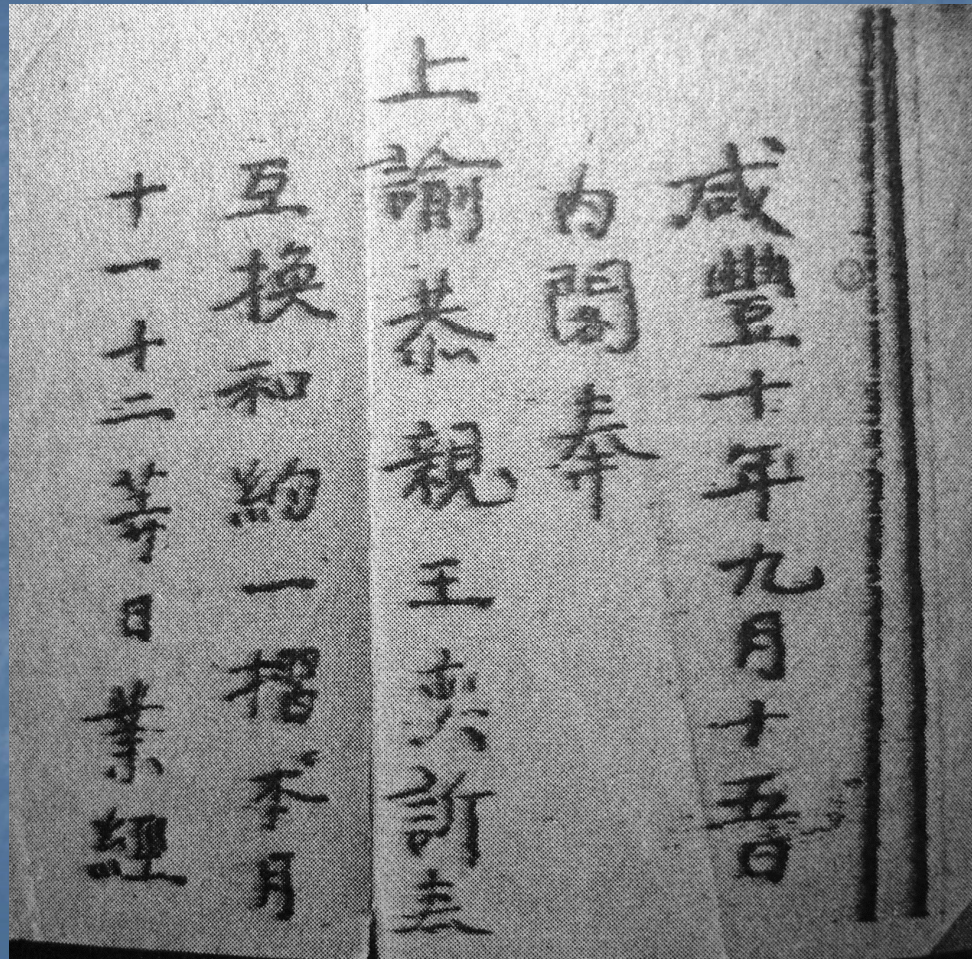 咸豐十年九月十五日
内閣奉
上諭恭親王奕訢奏
互換和約一摺本月
十一十二等日業經